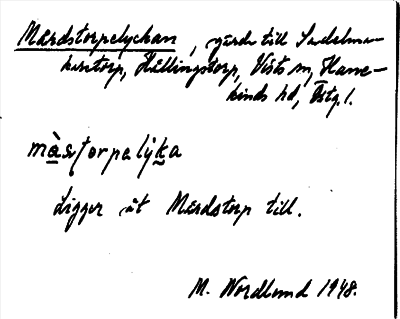 Mærdstorpelyckan, gärde till Sadelma-
karetorp, Hällingstorp, Vists sn, Hane-
kinds hd, Östg. l.
mæ̀sṭorpalyḱa
Ligger åt Mærdstorp till.
M. Nordlund 1948.